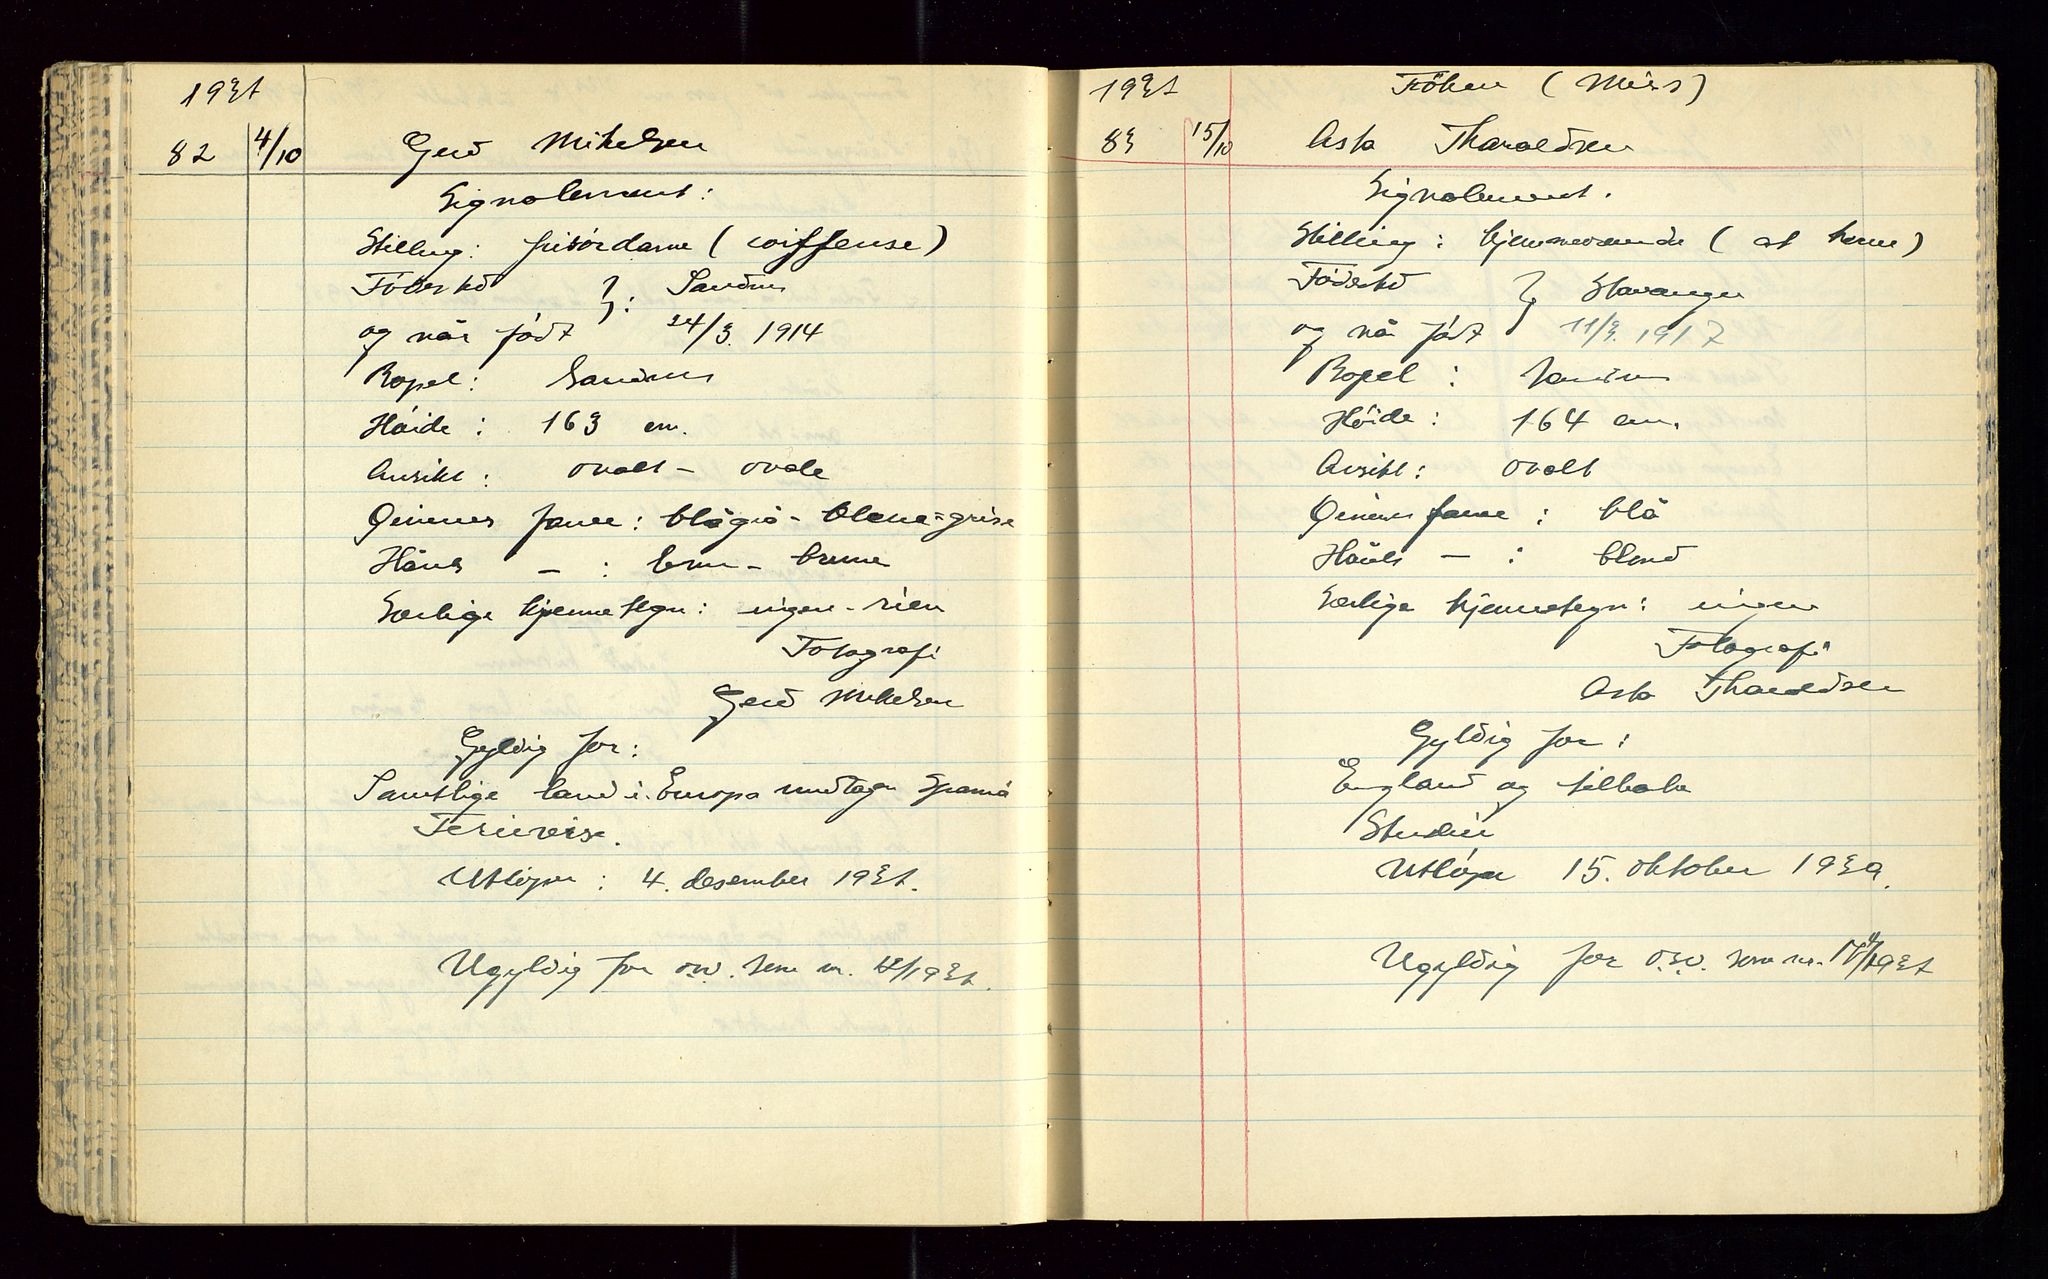 1937
82 4/10 Gerd Mikelsen
Signalement:
Stilling: frisördame (coiffeuse)
Födested } : Sandnes
og når født 24/3. 1914
Bopel: Sandnes
Høide: 163 cm.
Ansikt: ovalt - ovale
Øienes farve: blågrå - bleue-grise
Hårets - : brun - brune
Særlige kjennetegn: ingen - rien
Fotografi
Gerd Mikelsen
Gyldig for:
Samtlige land i Europa undtagen Spania
Feriereise.
Utløper: 4. desember 1937.
Ugyldig for o.v. som nr. /1937.
1937 Frøken (Miss)
83 15/10 Asta Tharaldsen
Signalement.
Stilling: hjemmeværende (at home)
Fødested } Stavanger
og når født 11/3. 1917
Bopel: Sandnes
Høide: 164 cm.
Ansikt: ovalt
Øienes farve: blå
Hårets - : blond
Særlige kjennetegn: ingen
Fotografi
Asta Tharaldsen
Gyldig for:
England og tilbake
Studier
Utløper 15. oktober 1939.
Ugyldig for o.s.v. som nr. /1937